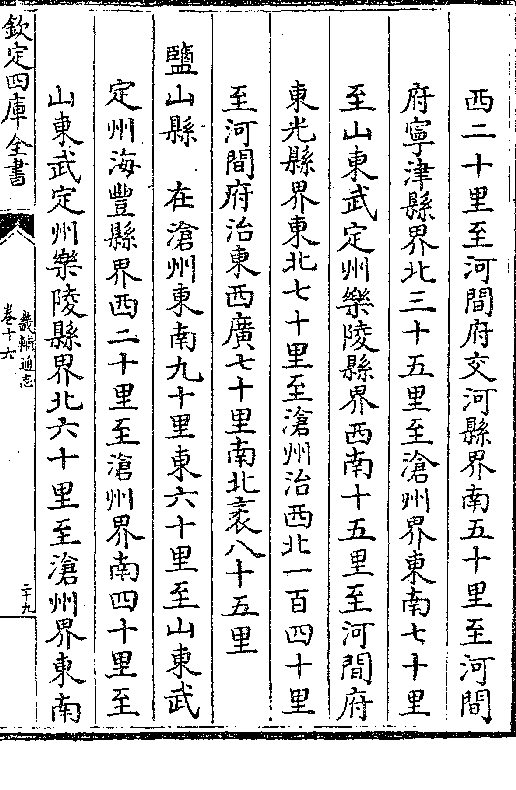 西二十里至河間府交河縣界南五十里至河間
府寧津縣界北三十五里至滄州界東南七十里
至山東武定州樂陵縣界西南十五里至河間府
東光縣界東北七十里至滄州治西北一百四十里
至河間府治東西廣七十里南北袤八十五里
鹽山縣 在滄州東南九十里東六十里至山東武
定州海豐縣界西二十里至滄州界南四十里至
山東武定州樂陵縣界北六十里至滄州界東南
欽定四庫全書
畿輔通志
卷十六
二十九